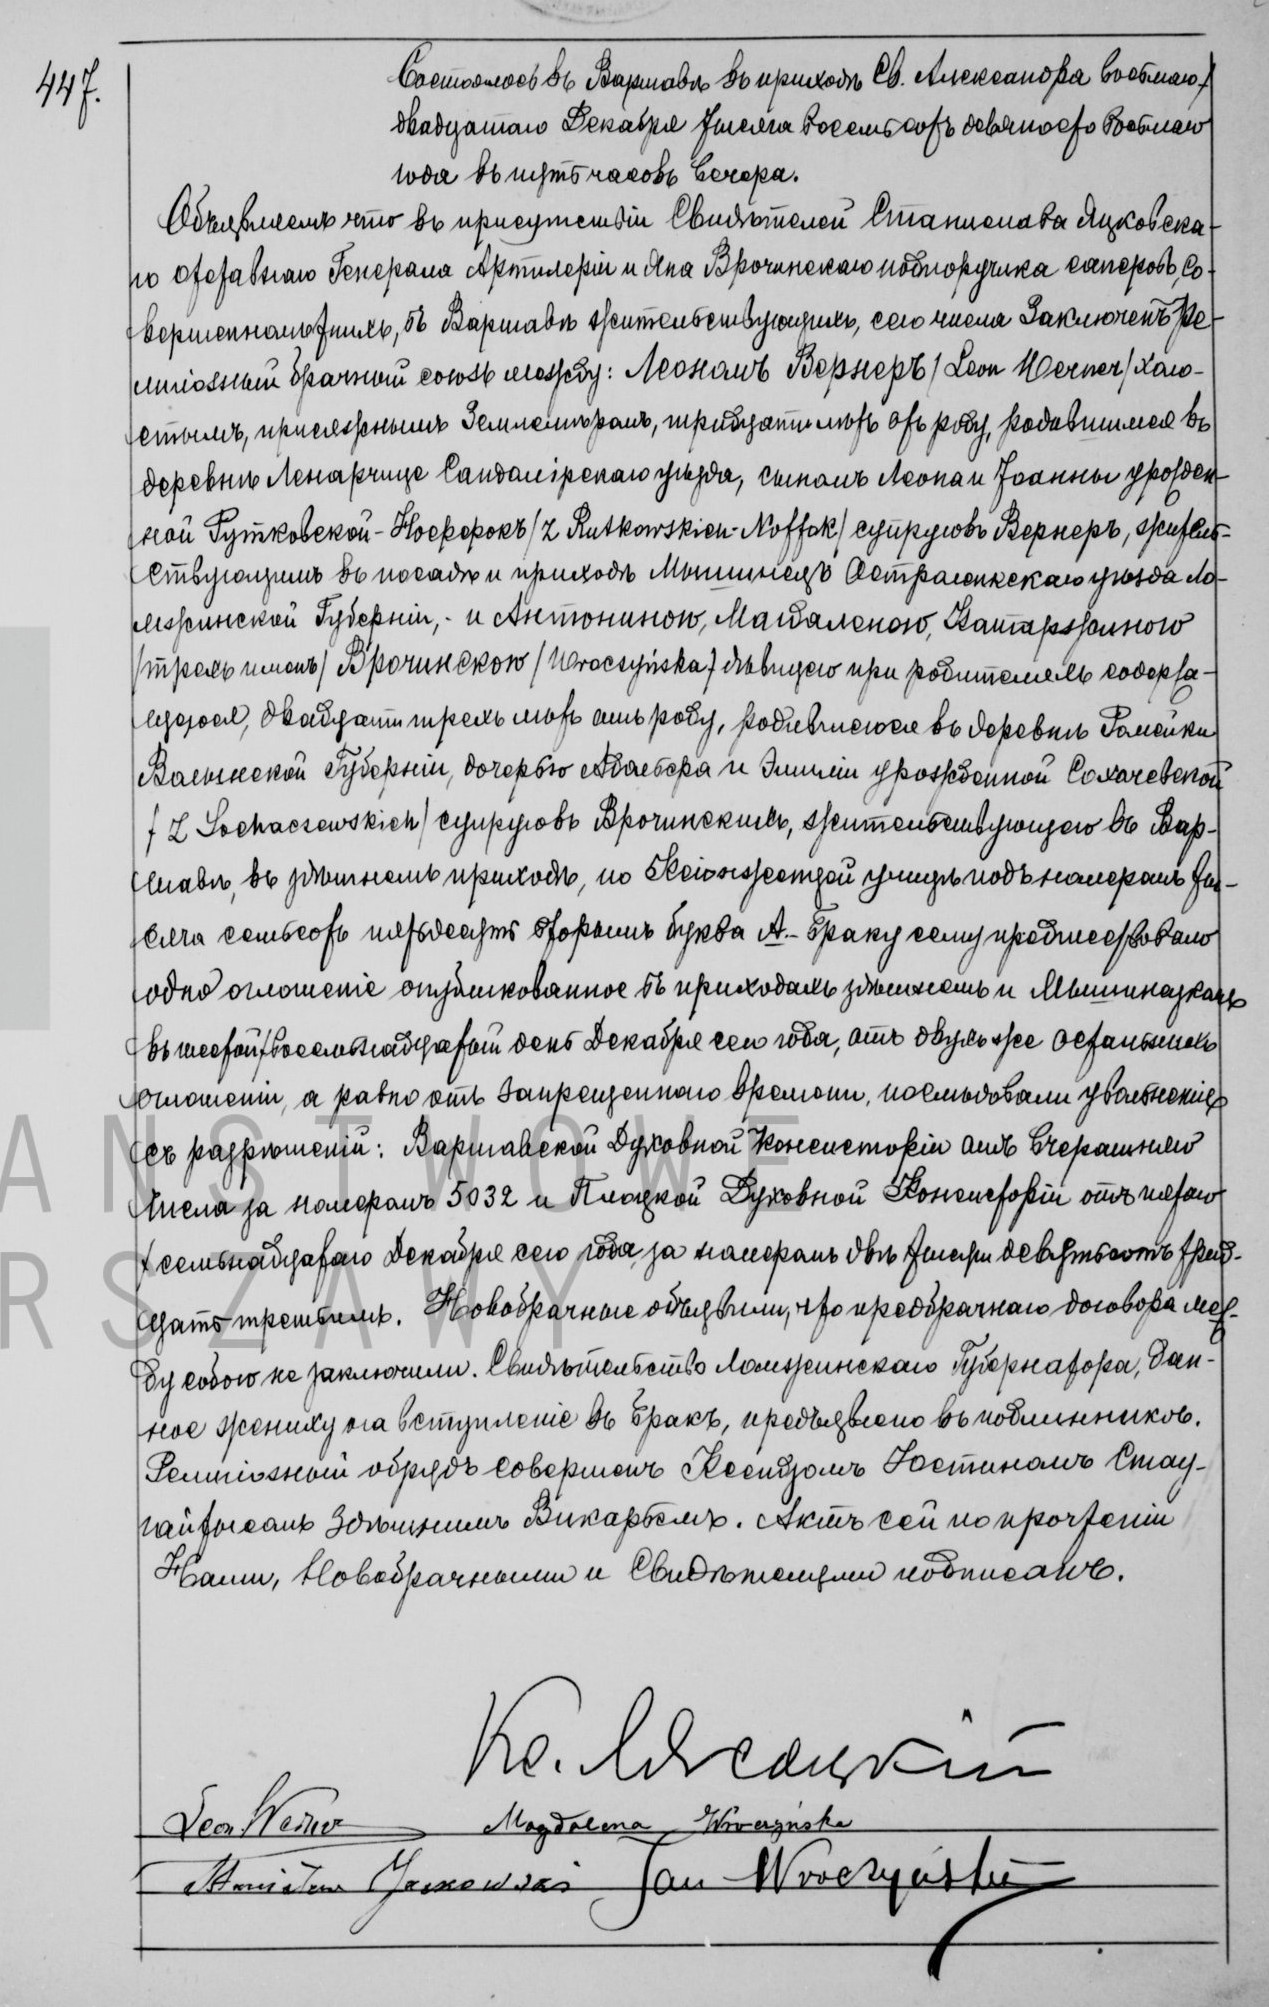 447.
Состоялось въ Варшавѣ въ приходѣ Св. Александра восьмаго/
двадцатаго Декабря тысяча восемьсотъ девяносто восьмаго
года въ пять часовъ вечера.
Объявляемъ что въ присутствіи Свидѣтелей Станислава Яцковска-
го отставнаго Генерала Артилеріи и Яна Врочинскаго подпоручика саперовъ, Со-
вершеннолѣтнихъ, въ Варшавѣ жительствующихъ, сего числа Заключенъ Ре-
лигіозный брачный союзъ между: Леономъ Вернеръ /Leon Werner/ холо-
стымъ, присяжнымъ Землемѣромъ, тридцати лѣтъ отъ роду, родившимся въ
деревнѣ Ленарчице Сандомірскаго уѣзда, сыномъ Леона и Іоанны урожден-
ной Рутковской-Носффокъ /z Rutkowskich-Noffok/ супруговъ Вернеръ, жительс-
ствующимъ въ посадѣ и приходѣ Мышинецъ Остроленкскаго уѣзда Ло-
мжинской Губерніи,- и Антониною, Магдаленою, Катаржиною
/трехъ именъ/ Врочинскою /Wroczyńska/ дѣвицею при родителяхъ содержа-
щеюся, двадцати трехъ лѣтъ отъ роду, родившеюся въ деревнѣ Ромейки
Волынской Губерніи, дочерью Адольфа и Эмиліи урожденной Сохачевской
/z Sochaczewskich/ супруговъ Врочинскихъ, жительствующею въ Вар-
шавѣ, въ здѣшнемъ приходѣ, по Ксіонжецей улицѣ подъ номеромъ ты-
сяча семьсотъ пятьдесятъ вторымъ буква А.- Браку сему предшествовало
одно оглашеніе опубликованное въ приходахъ здѣшнемъ и Мышинецкомъ
въ шестой/восемьнадцатый день Декабря сего года, отъ двухъ же остальныхъ
оглашеній, а равно отъ запрещеннаго времени, послѣдовали увольненіе
съ разрѣшеній: Варшавской Духовной Консисторіи отъ вчерашняго
числа за номеромъ 5032 и Плоцкой Духовной Консисторіи отъ пятаго
/семьнадцатаго Декабря сего года за номеромъ двѣ тысячи девятьсотъ трид-
цать третьимъ. Новобрачные объявили, что предбрачнаго договора меж-
ду собою не заключили. Свидѣтельство Ломжинскаго Губернатора, дан-
ное жениху на вступленіе въ бракъ, предъявлено въ подлинникѣ.
Религіозный обрядъ совершенъ Ксендзомъ Юстиномъ Стау-
гайтысомъ Здѣшнимъ Викаріемъ. Актъ сей по прочтеніи
Нами, Новобрачными и Свидѣтелями подписанъ.
Leon Werner Magdalena Wroczyńska
Stanisław Jackowski Jan Wroczyński
PAŃSTWOWE
WARSZAWY